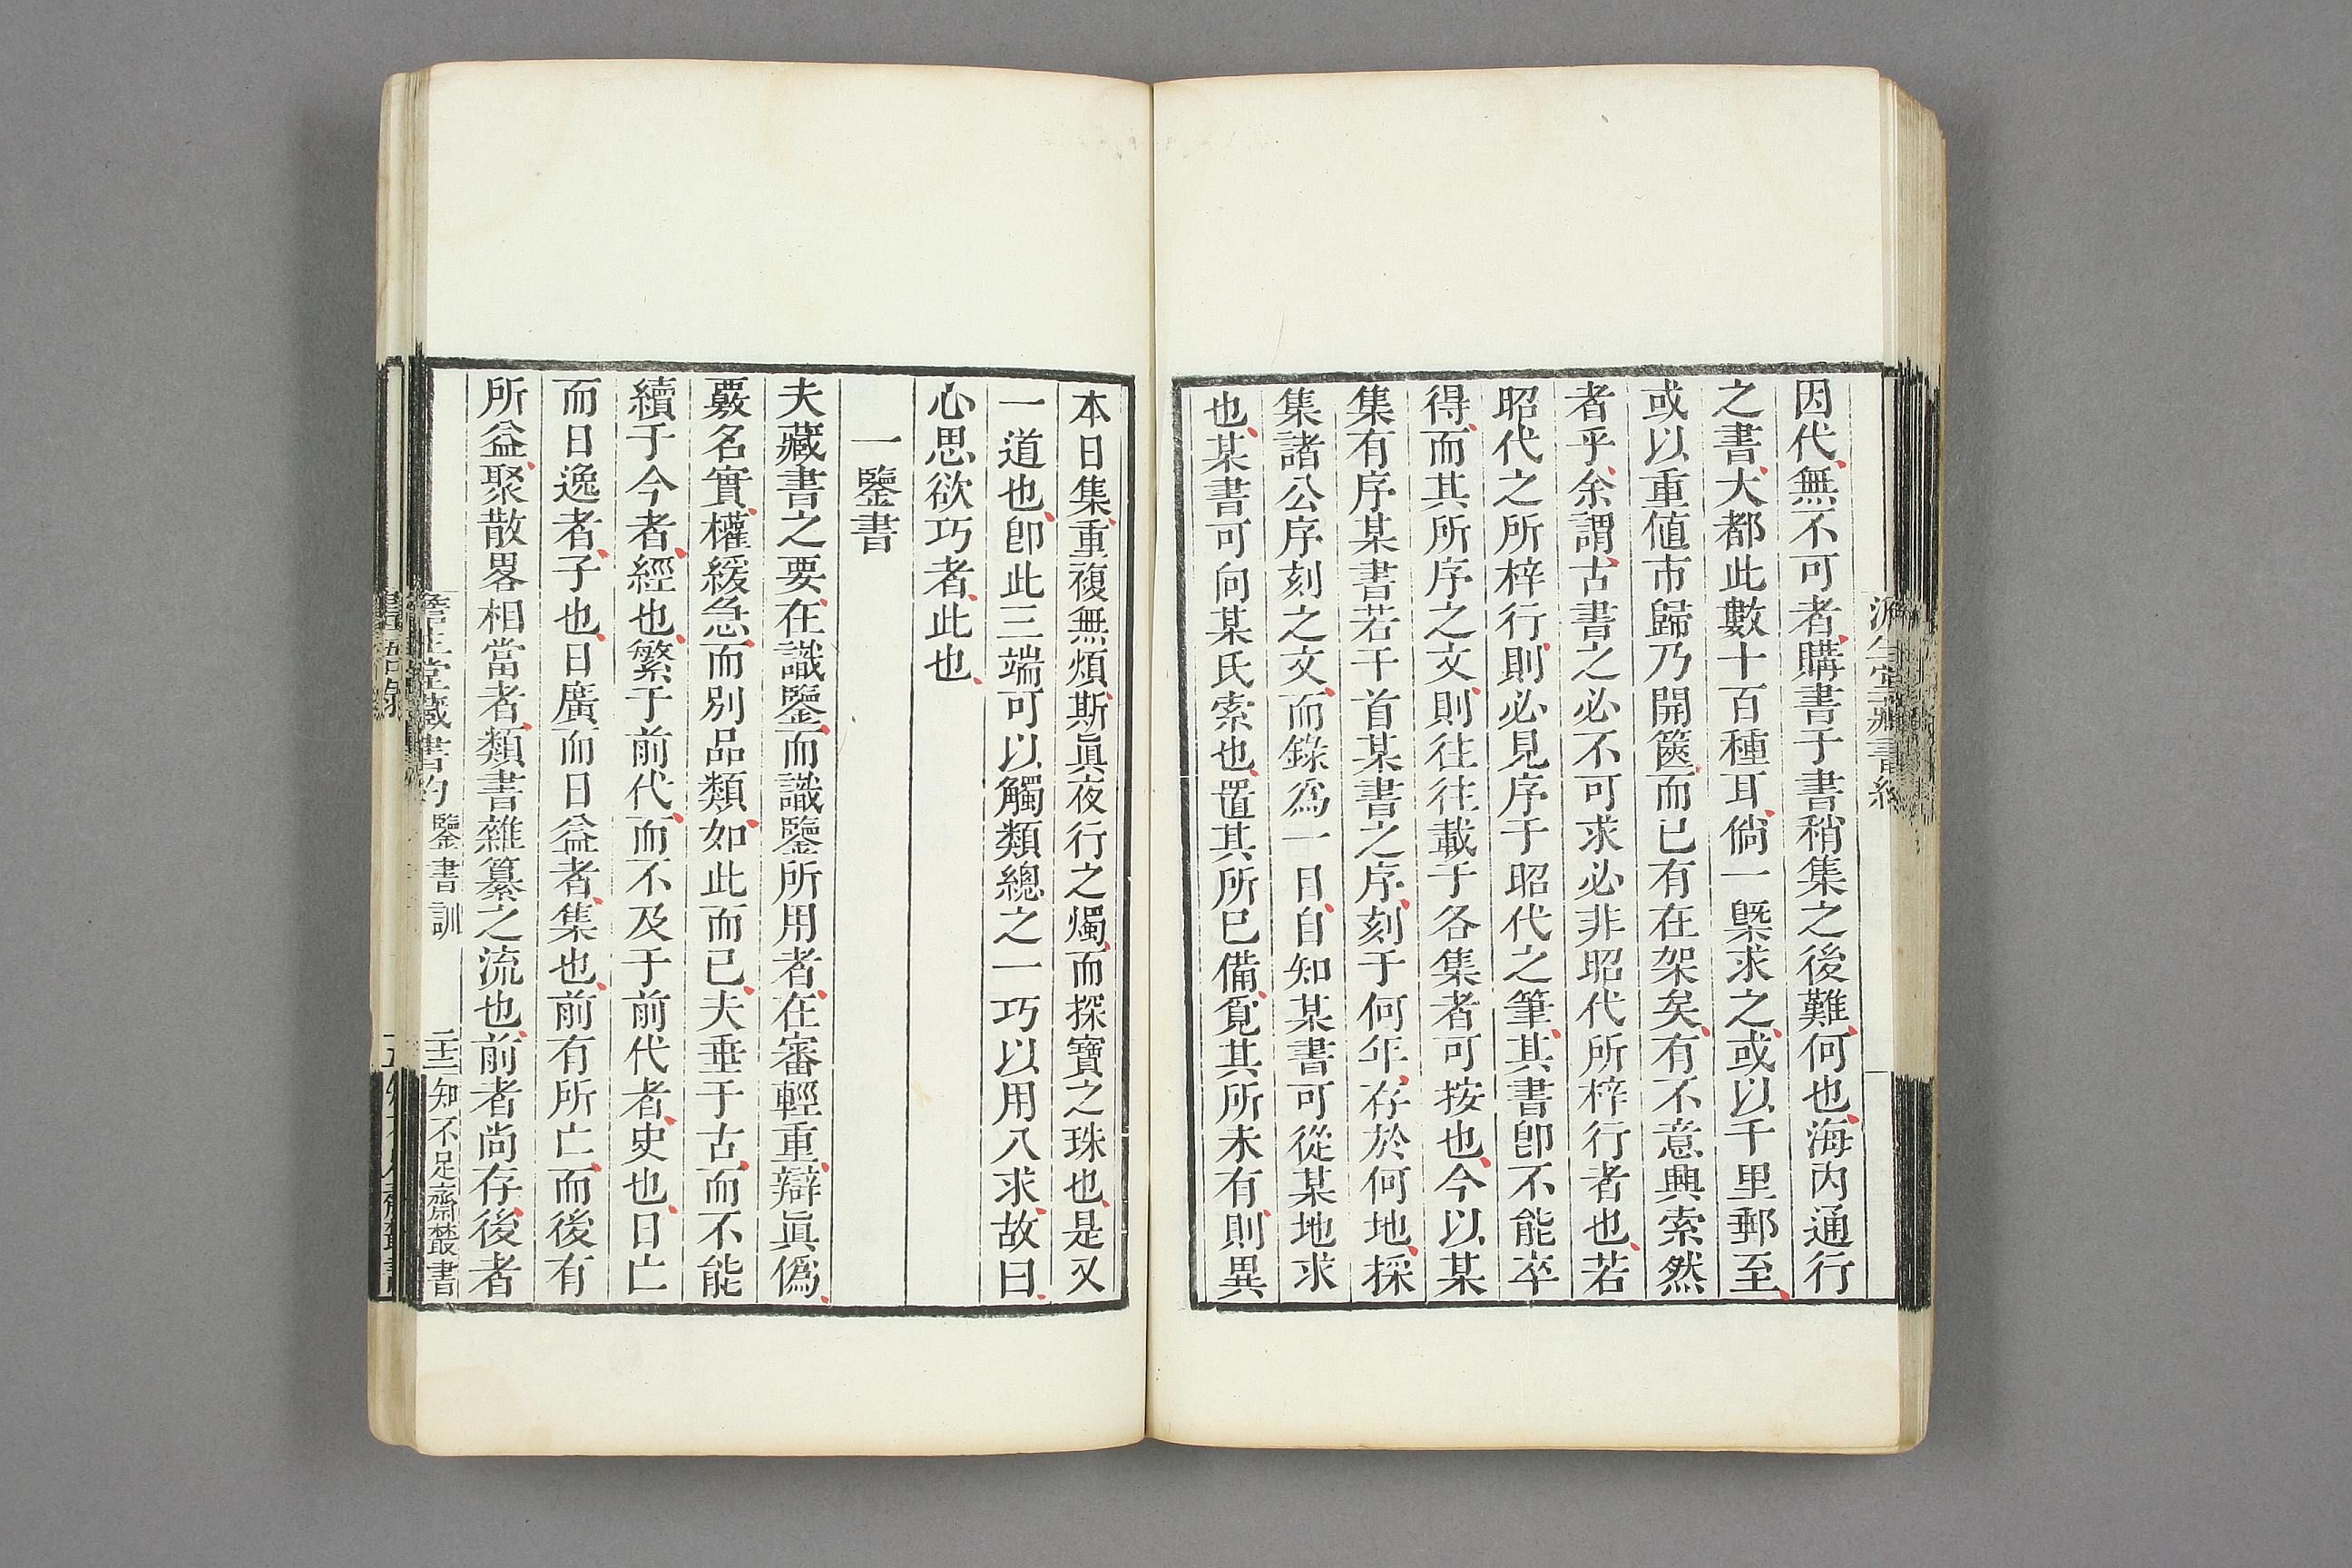 因代無不可者購書于書稍集之後難何也海内通行
之書大都此數十百種耳倘一槩求之或以千里郵至
或以重値市歸乃開篋而已有在架矣有不意興索然
者乎余謂古書之必不可求必非昭代所梓行者也若
昭代之所梓行則必見序于昭代之筆其書卽不能卒
得而其所序之文則往往載于各集者可按也今以某
集有序某書若干首某書之序刻于何年存於何地採
集諸公序刻之文而錄爲一目自知某書可從某地求
也某書可向某氏索也置其所已備覔其所未有則異
本日集重複無煩斯眞夜行之燭而探寶之珠也是又
一道也卽此三端可以觸類總之一巧以用八求故曰
心思欲巧者此也
一鑒書
夫藏書之要在識鑒而識鑒所用者在審輕重辯眞僞
覈名實權緩急而別品類如此而已夫垂于古而不能
續于今者經也繁于前代而不及于前代者史也日亡
而日逸者子也日廣而日益者集也前有所亡而後有
所益聚散畧相當者類書雜纂之流也前者尚存後者
生堂藏書約 鑒書訓 知不足齋叢書